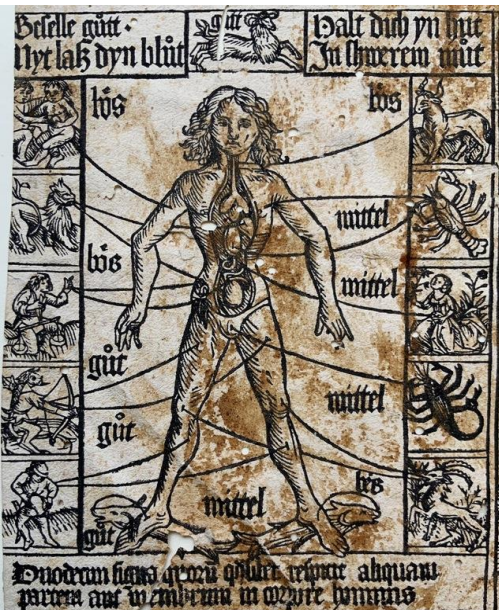 Geselle gůtt·
Nyt laß dyn blůt
gůt
Halt dich yn hut
In schwerem můt
bös
bös
mittel
bös
mittel
gůt
mittel
gůt
mittel
bös
gůt
Duodecim signa quorū qdlibet respicit aliquam
partem aut membrum in corpore hominis